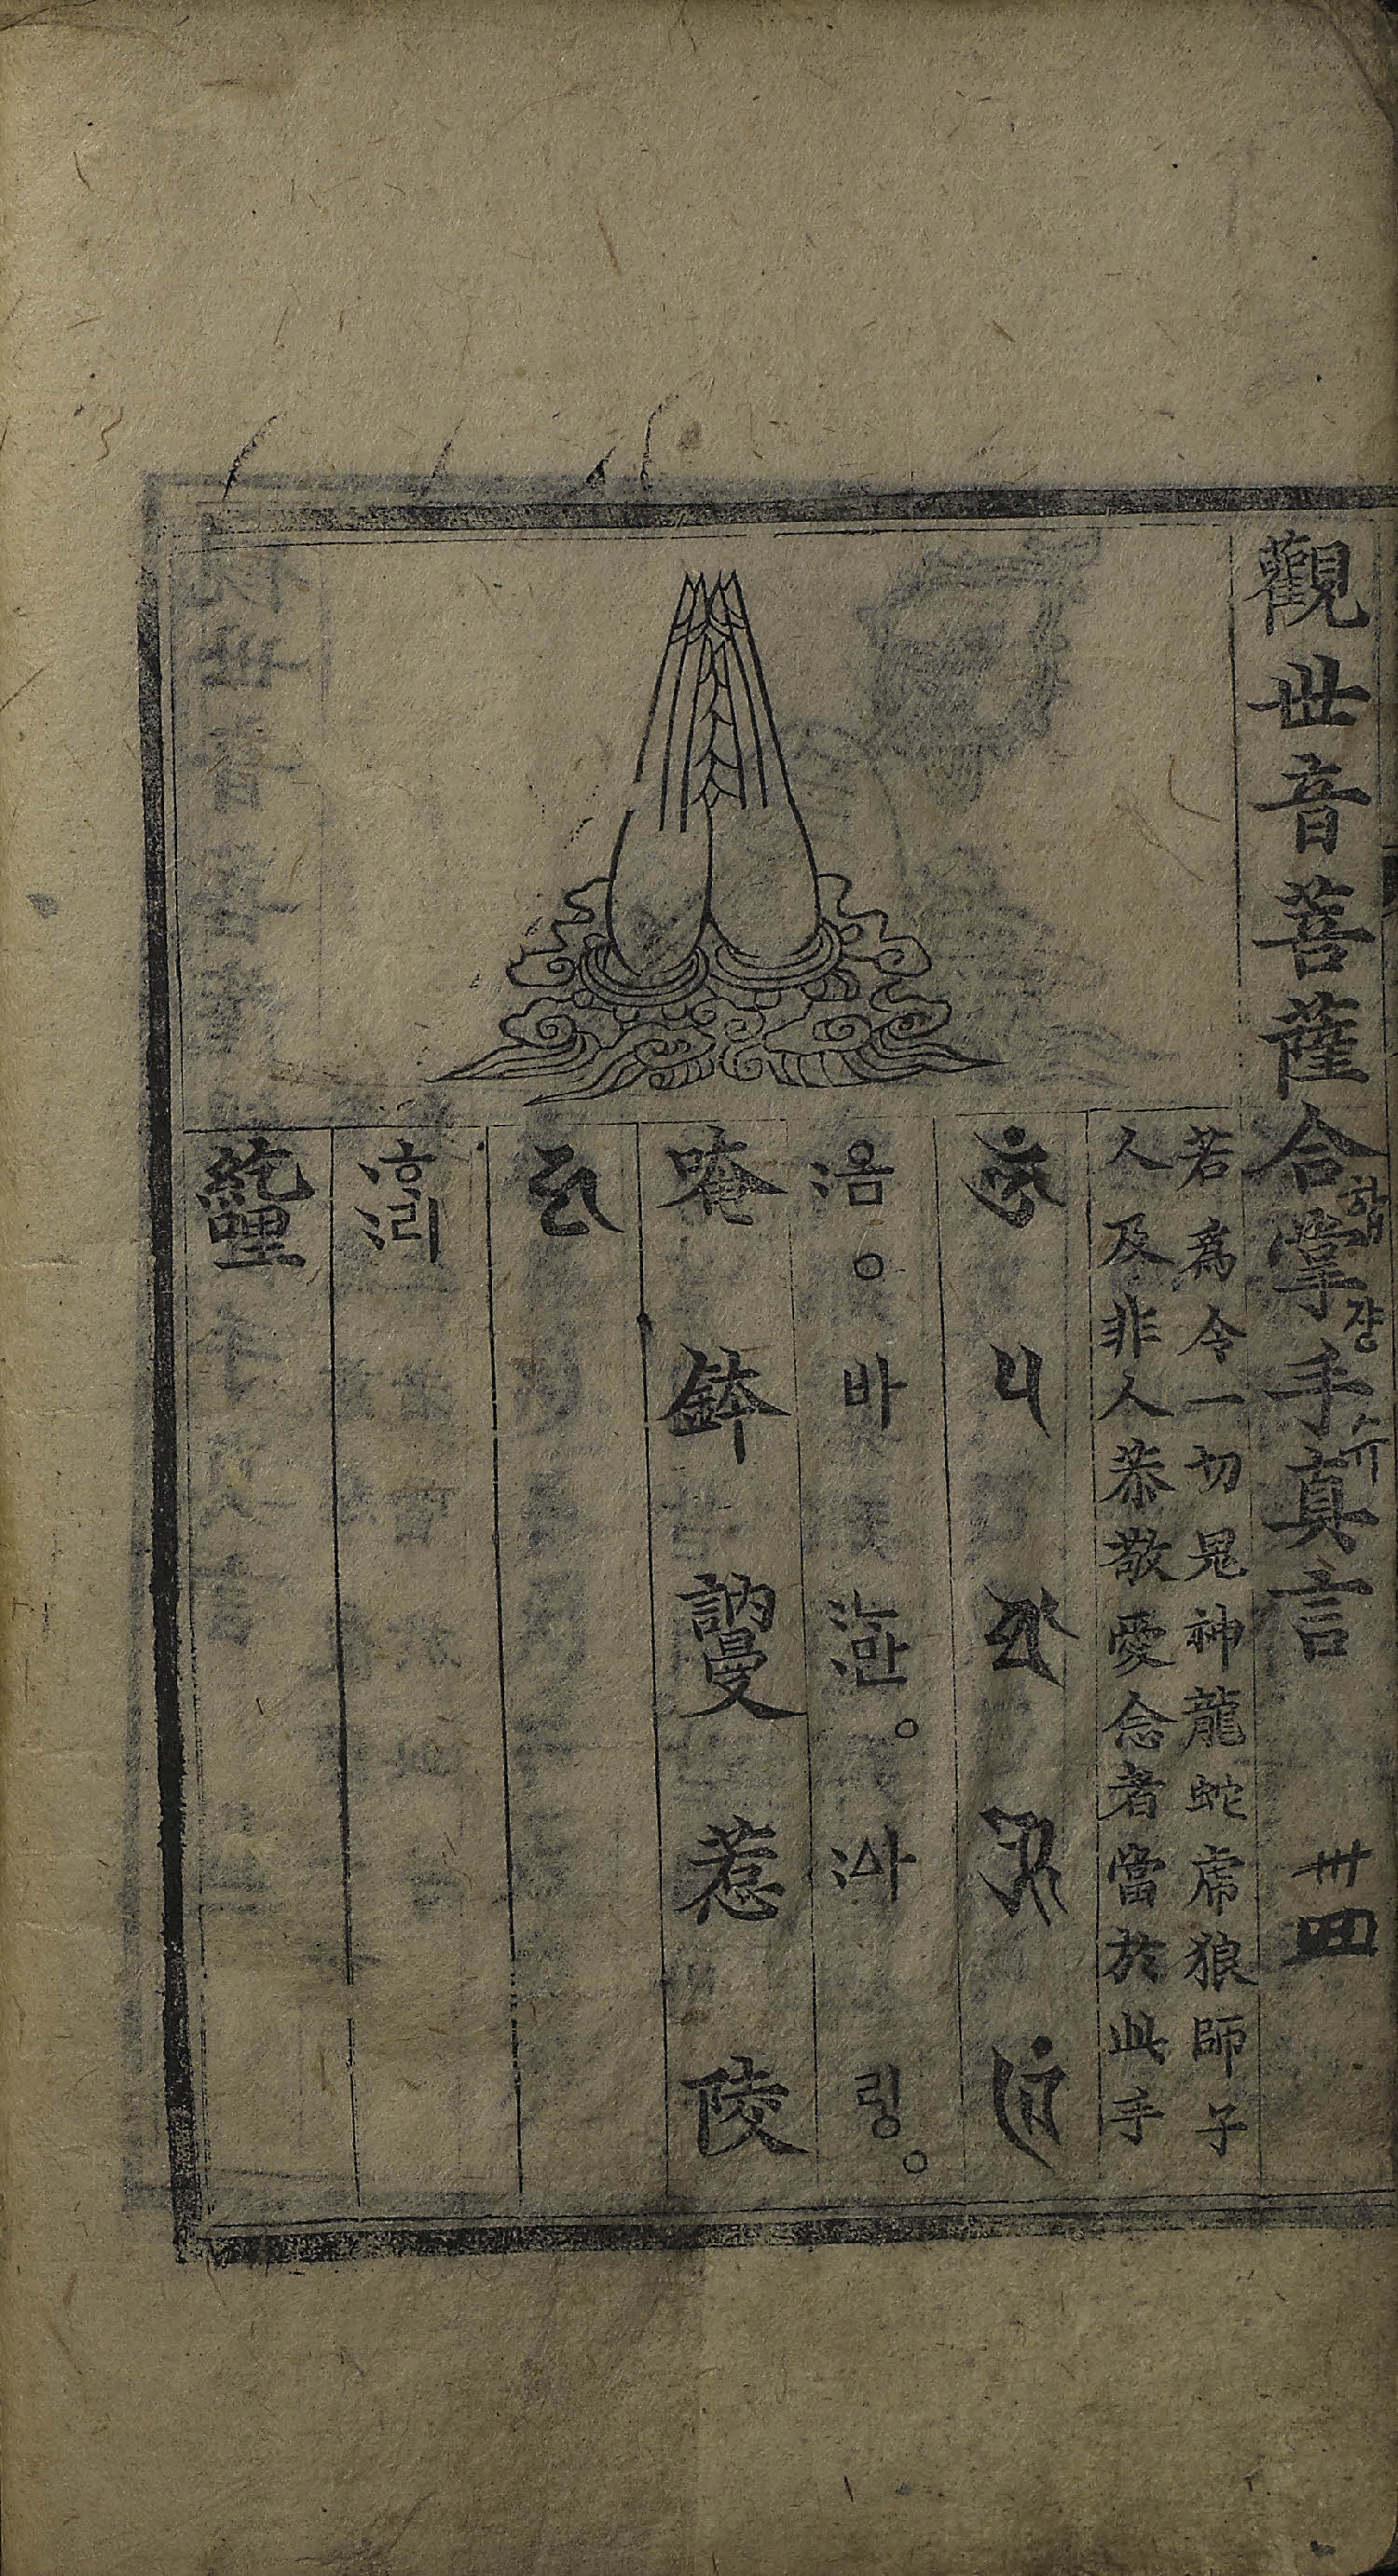 觀世音菩薩合掌手真言 卅四
쟝
슈
若爲令一切鬼神龍蛇虎狼師子
人及非人恭敬愛念者當於此手
〯옴。 바 만。 〯ᅀᅡ 링。
唵 鉢 訥曼 惹 陵
〯흐〯리
紇哩